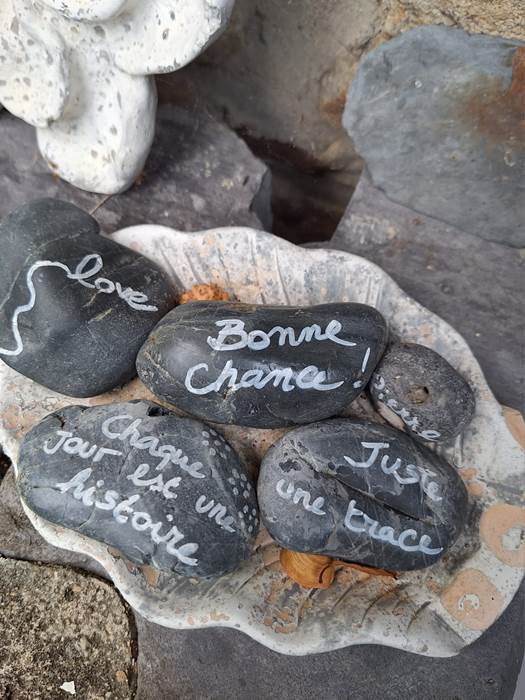 love
Bonne
Chance !
Chaque
Jour est une
histoire
Juste
une trace